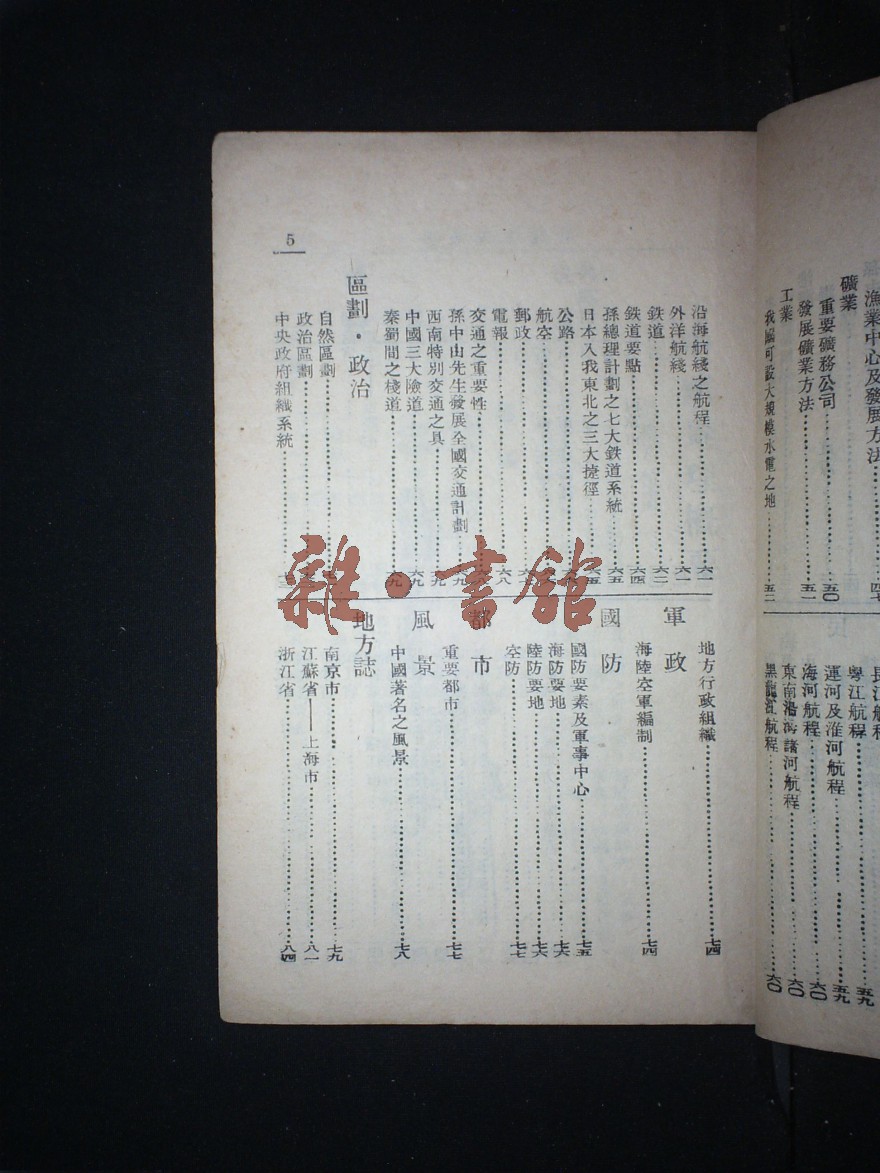 漁業中心及發展方法……四七
礦業
重要礦務公司……五〇
發展礦業方法……五一
工業
我國可設大規模水電之地……五二
長江航程
粵江航程……五九
運河及淮河航程……五九
海河航程……六〇
東南沿海諸河航程……六〇
黑龍江航程……六〇
5
沿海航綫之航程……六一
外洋航綫……六一
鉄道……六二
鉄道要點……六四
孫總理計劃之七大鉄道系統……六五
日本入我東北之三大捷徑……六五
公路
航空
郵政
電報……六八
交通之重要性
孫中山先生發展全國交通計劃……六九
西南特別交通之具……六九
中國三大險道……六九
秦蜀間之棧道……六九
區劃・政治
自然區劃
政治區劃
中央政府組織系統
地方行政組織……七四
軍政
海陸空軍編制……七四
國防
國防要素及軍事中心……七五
海防要地……七六
陸防要地……七六
空防……七七
都市
重要都市……七七
風景
中國著名之風景……七八
地方誌
南京市……七九
江蘇省——上海市……八一
浙江省……八四
雜・書館